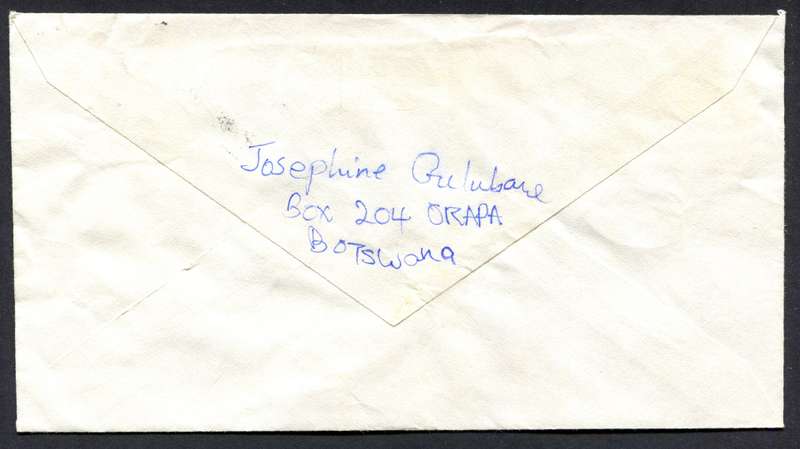 Josephine Gulubane
Box 204 ORAPA
BOTSwana